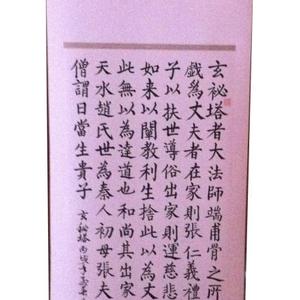 玄祕塔者大法師端甫骨之所
戲為丈夫者在家則張仁義禮
子以扶世導俗出家則運慈悲
如來以闡教利生捨此以為丈
此無以為達道也和尚其出家
天水趙氏世為秦人初母張夫
僧謂日當生貴子 玄秘塔丙戌年